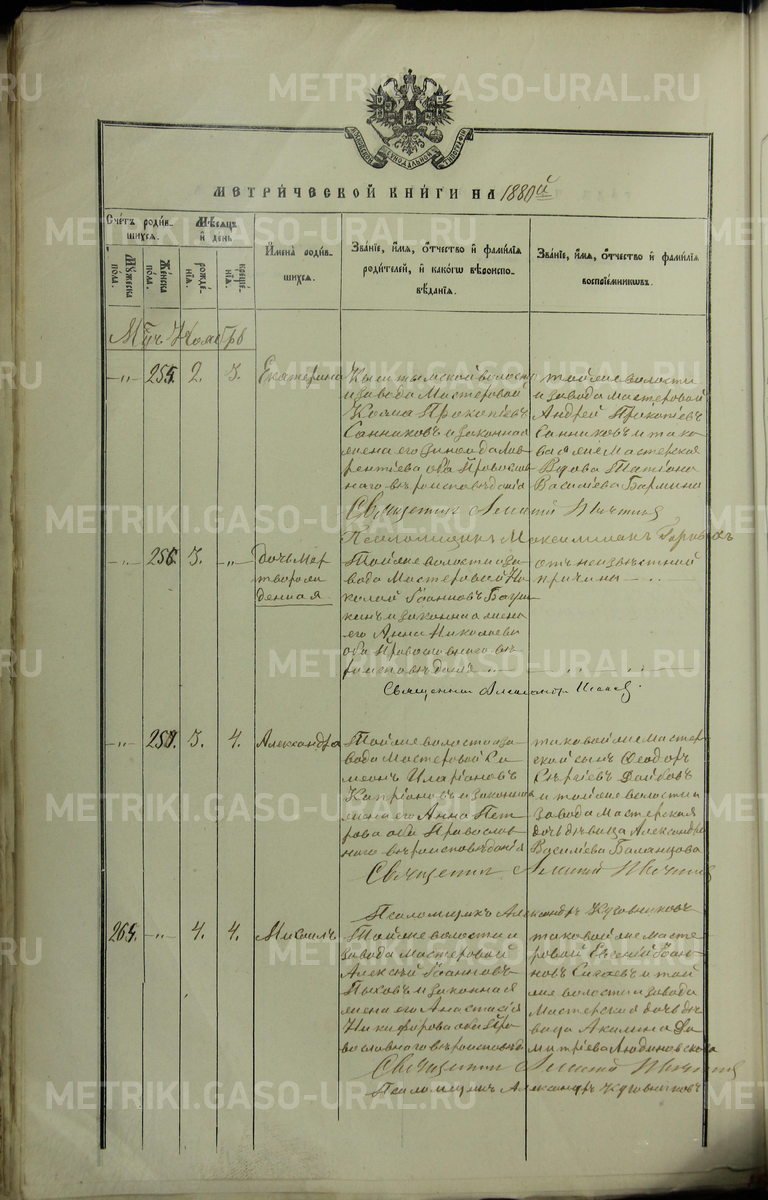 МЕТРИ́ЧЕСКОЙ КНИ́ГИ НА 1880й
Сче́тъ роди́в-
шихся.
Му́жеска
по́ла.
Же́нска
по́ла.
Мѣ́сяцъ
и҆ день
рожде́-
нїя.
креще́-
нїя.
И҆мена̀ роди́в-
шихся.
Зва́нїе, и҆́мя, ѻ҆́тчество и҆ фами́лїя
роди́телей, и҆ како́гѡ вѣроиспо-
вѣ́данїя.
Зва́нїе, и҆́мя, ѻ҆́тчество и҆ фами́лїя
воспрїе́мникѡвъ.
-"- 255. 2. 3. Екатерина
Кыштымской волости
и завода Мастеровой
Козма Прокопіевъ
Санниковъ и законная
жена его Зиновда Лав-
рентіева, оба Православ-
наго вѣроисповѣданія
той же волости
и завода мастеровой
Андрей Прокопіевъ
Санниковъ и тако-
вая же Мастерская
Вдова Татіана
Василіева Бармина
Священник
Псаломщик Максимиліан
-"- 256. 3. -"- Дочь Мер-
творож-
денная
Той же волости и за-
вода Мастеровой Ни-
колай Іоанновъ
и законная жена
его Анна Николаева
оба Православнаго вѣ-
роисповѣданія
отъ неизвѣстной
причины
Священник Александр
-"- 257. 3. 4. Александра
Той же волости и за-
вода Мастеровой Си-
меонъ Иларіоновъ
Капріановъ и законная
жена его Анна Пет-
рова оба Православ-
наго вѣроисповѣданія
таковой же Мастер-
ской сынъ Ѳеодоръ
Сергіевъ
и той же волости и
завода Мастерская
дочь дѣвица Александра
Василіева Баланцова
Священник
Псаломщикъ Александръ Кудовниковъ
264. -"- 4. 4. Михаилъ
Той же волости и
завода Мастеровой
Алексѣй Іоанновъ
Пыховъ и законная
жена его Анастасія
Никифорова оба Пра-
вославнаго вѣроисповѣд
таковой же Масте-
ровой Евгеній Іоан-
новъ Сигаевъ и той
же волости и завода
Мастерская дочь дѣ-
вица Акилина Ди-
митріева Людиновскова
Священник
Псаломщик Александръ Кудовниковъ
METRIKI.GASO-URAL.RU